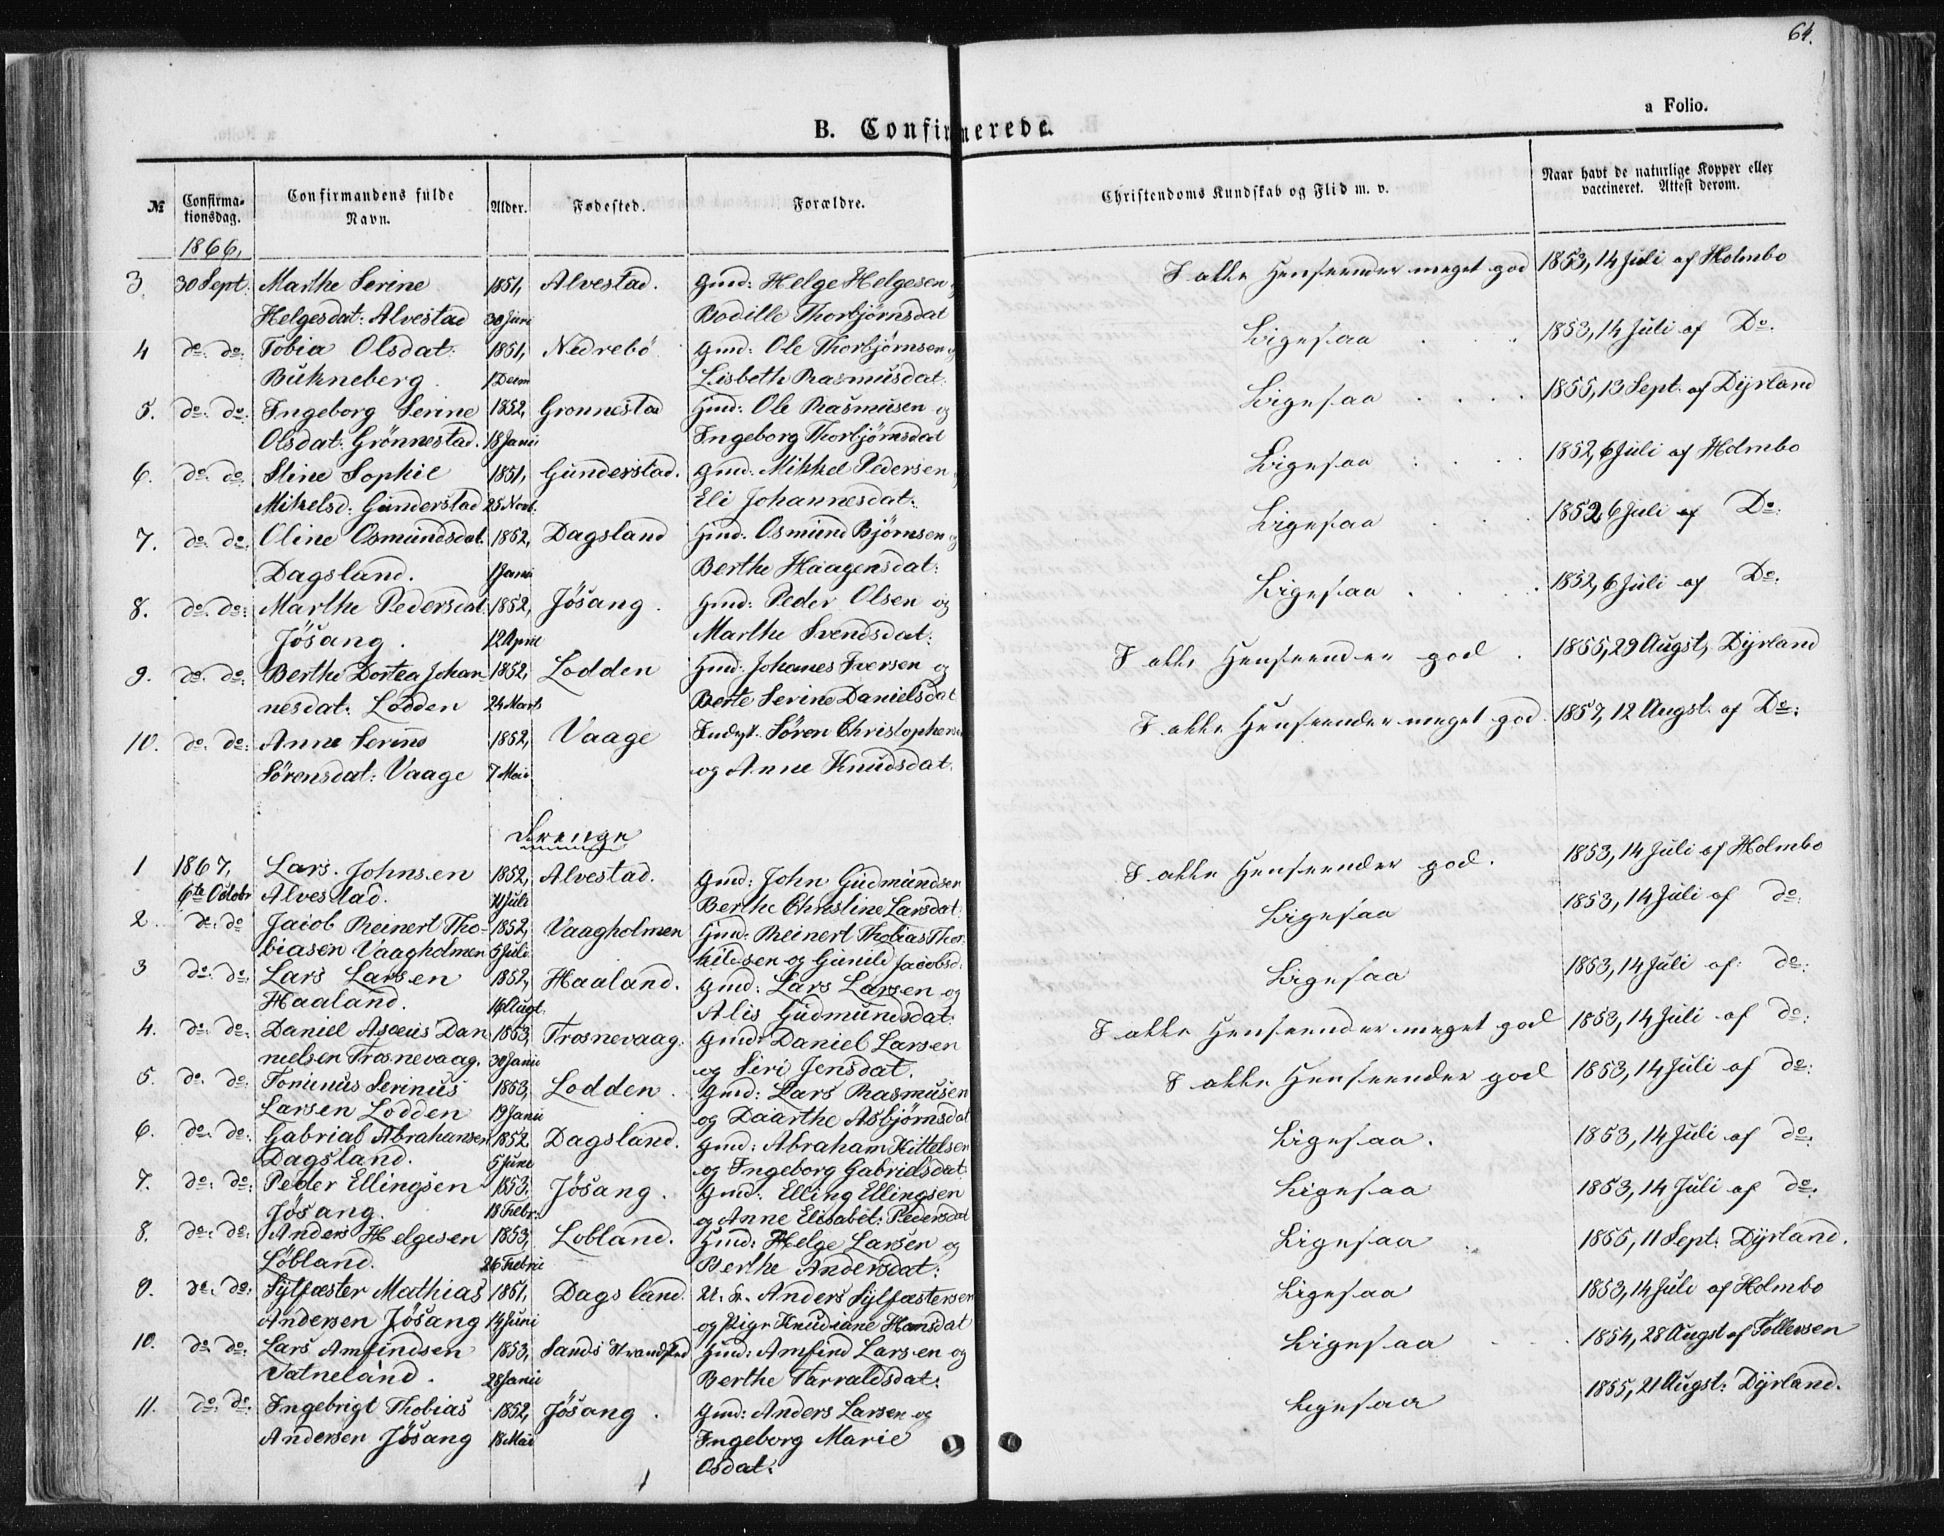 64.
a Folio.
B. Confirmerede.
№ Confirma-tionsdag. Confirmandens fulde Navn. Alder. Fødested. Forældre. Christendoms Kundskab og Flid m. v. Naar havt de naturlige Kopper eller vaccineret. Attest derom.
1866,
3. 30 Sept. Marthe Serine 1851, Alvestad. Gmd: Helge Helgesen og I alle Henseender meget god 1853, 14 Juli af Holmbo
Helgesdat: Alvestad 30 Juni Bodille Thorbjørnsdat
4 do. do: Tobia Olsdat: 1851, Nedrebö Gmd: Ole Thorbjørnsen og Ligesaa 1853, 14 Juli af Do.
Bukneberg. 1 Decm Lisbeth Rasmusdat.
5. do. do: Ingeborg Serine 1852, Gronnestad Gmd: Ole Rasmusen og Ligesaa 1855, 13 Sept. af Dyrland
Olsdat: Grönnestad. 18 Janu Ingeborg Thorbjørnsdat
6. do. do Stine Sophie 1851, Gunderstad. Gmd: Mikkel Pedersen Ligesaa 1852, 6 Juli af Holmbo
Mikelsd: Gunderstad 25 Novt. Eli Johannesdat:
7. do. do: Oline Osmundsdat. 1852, Dagsland Gmd. Osmund Bjørnsen og Ligesaa 1852, 6 Juli af Do:
Dagsland. 1 Janu Berthe Haagensdat:
8. do. do: Marthe Pedersdat 1852, Jösang. Gmd: Peder Olsen og Ligesaa 1852, 6 Juli af Do.
Jösang. 12 April Marthe Svendsdat:
9. do. do: Berthe Dortea Johan 1852, Lodden Gmd. Johanes Iversen og I alle Henseender god. 1855, 29 Augst, Dyrland
nesdat. Lodden 24 Marts Berte Serine Danielsdat
10. do. do: Anne Serine 1852, Vaage Indst. Sören Christophersen I alle Henseender meget god. 1857, 12 Augst. af Do:
Sörensdat: Vaage 7 Mai og Anne Knudsdat.
Drenge
1 1867, Lars Johnsen 1852, Alvestad. Gmd: John Gudmundsen I alle Henseender god. 1853, 14 Juli af Holmbo
6te Octobr Alvestad. Juli Berthe Christine Larsdat
2. do. do Jacob Reinert Tho- 1852, Vaagholmen Gmd: Reinert Thobias Thor- Ligesaa 1853, 14 Juli af do:
biasen Vaagholmen 5 Juli. kildsen og Gunild Jacobsd.
3 do. do: Lars Larsen 1852, Haaland. Gmd: Lars Larsen og Ligesaa 1853, 14 Juli af: do:
Haaland. Augt. Alis Gudmundsdat.
4. do. do: Daniel Asseus Dan 1853, Trosnevaag. Gmd: Daniel Larsen I alle Henseender meget god 1853, 14 Juli af do:
nielsen Trosnevaag. 30 Janu og Siri Jensdat.
5. do. do: Tonienus Serinus 1853, Lodden. Gmd: Lars Rasmusen I alle Henseender god 1853, 14 Juli af do:
Larsen Lodden 19 Janu og Daarthe Asbjørnsdat
6. do. do: Gabrial Abrahansen 1852 Dagsland. Gmd: Abraham Kittelsen Ligesaa. 1853, 14 Juli af do:
Dagsland. 5 June og Ingeborg Gabrielsdat
7. do: do: Peder Ellingsen 1853. Jösang. Gmd: Elling Ellingsen Ligesaa 1853, 14 Juli af do.
Jösang. 18 Febr: og Anne Elisabet: Pedersdat
8. do. do: Anders Helgesen 1853, Lobland. Gmd: Helge Larsen og Ligesaa 1855, 11 Sept: Dyrland.
Löbland. 26 Febru Berthe Andersdat:
9. do. do: Sylfæster Mathias 1851, Dagsland. U. K. Anders Sylfæstersen Ligesaa 1853, 14 Juli af Holmbo
Andersen Jösang 14 Juni og Pige Knudiane Hansdat
10. do. do: Lars Amfindsen 1853, Sands Strandsted Gmd: Amfind Larsen og Ligesaa 1854, 28 Augst af Tollevsen
Vatneland. 28 Janu Berthe Tarraldsdat:
11. do. do: Ingebrigt Thobias 1852, Jösang. Gmd: Anders Larsen og Ligesaa 1855, 21 Augst: Dyrland.
Andersen Jösang 18 Mai Ingeborg Marie
Osdat: